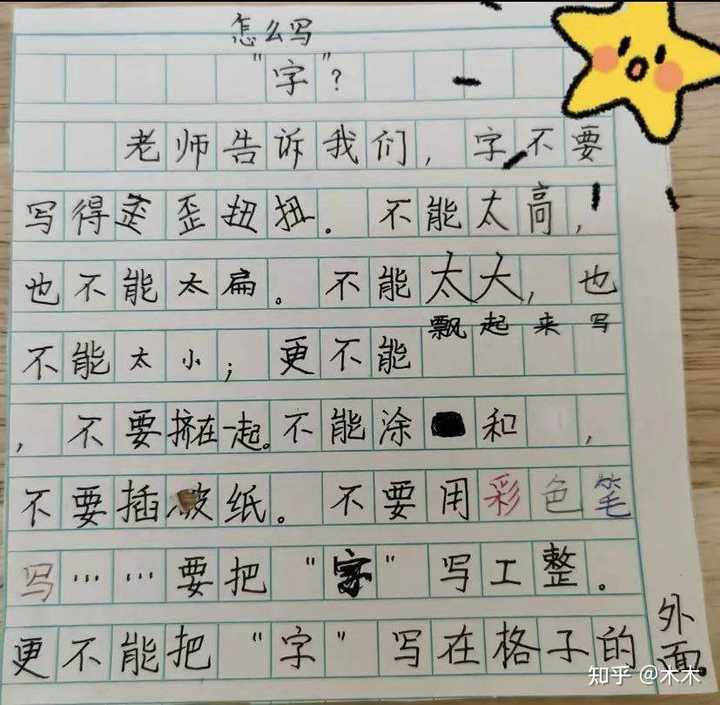 怎么写
"字"?
老师告诉我们，字不要
写得歪歪扭扭。不能太高，
也不能太扁。不能太大，也
不能太小；更不能飘起来写
，不要挤在一起。不能涂 和 ，
不要插破纸。不要用彩色笔
写……要把"字"写工整。
更不能把"字"写在格子的外面
知乎 @木木